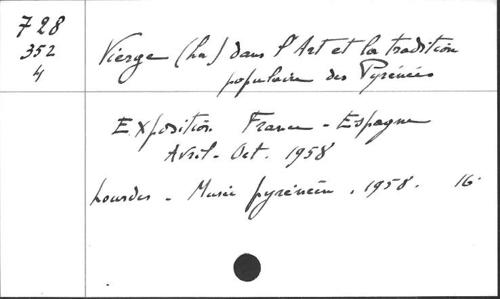 728
352
4
Vierge (La) dans l'Art et la tradition
populaire des Pyrénées
Exposition France - Espagne
Avril - Oct. 1958
Lourdes - Musée pyrénéen, 1958. 16°